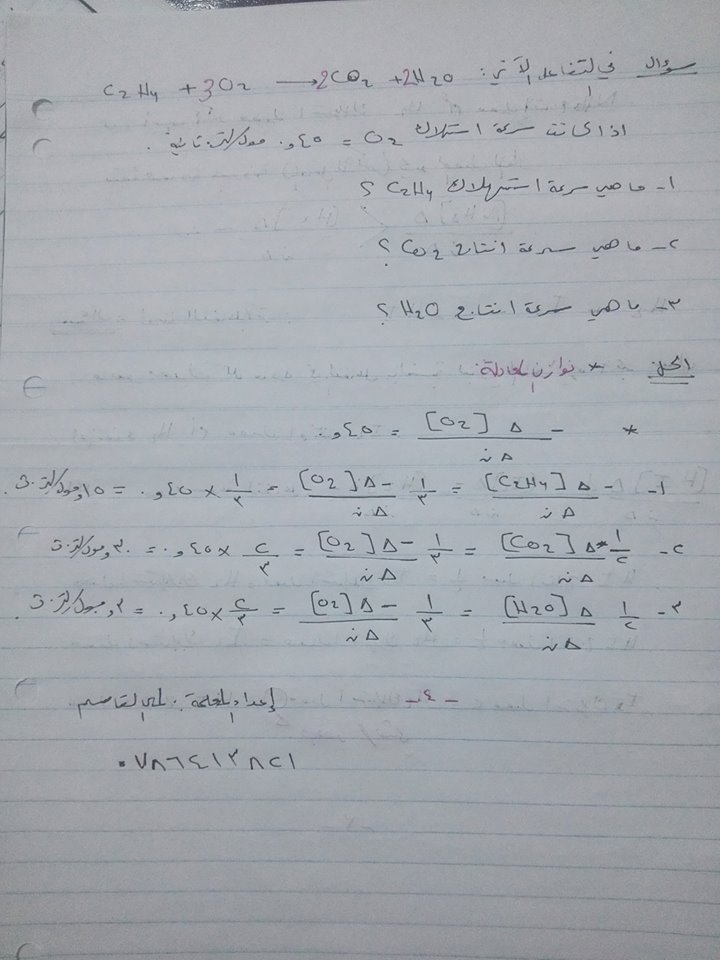 سؤال في التفاعل الآتي: C2H4 + 3O2 ⟶ 2CO2 + 2H2O
اذا كانت سرعة استهلاك O2 = ٤٥و٠ مول/لتر.ثانية.
١- ما هي سرعة استهلاك C2H4 ؟
٢- ما هي سرعة انتاج CO2 ؟
٣- ما هي سرعة انتاج H2O ؟
الحل * نوازن المعادلة:
* - Δ[O2] / Δن = ٤٥و٠
١- - Δ[C2H4] / Δن = ١/٣ - Δ[O2] / Δن = ١/٣ × ٤٥و٠ = ١٥و٠ مول/لتر.ث
٢- ١/٢ * Δ[CO2] / Δن = ١/٣ - Δ[O2] / Δن = ٢/٣ × ٤٥و٠ = ٣٠و مول/لتر.ث
٣- ١/٢ Δ[H2O] / Δن = ١/٣ - Δ[O2] / Δن = ٢/٣ × ٤٥و٠ = ٣و مول/لتر.ث
- ٤ - إعداد المعلمة: لمى القاسم
٠٧٨٦٤١٣٨٢١